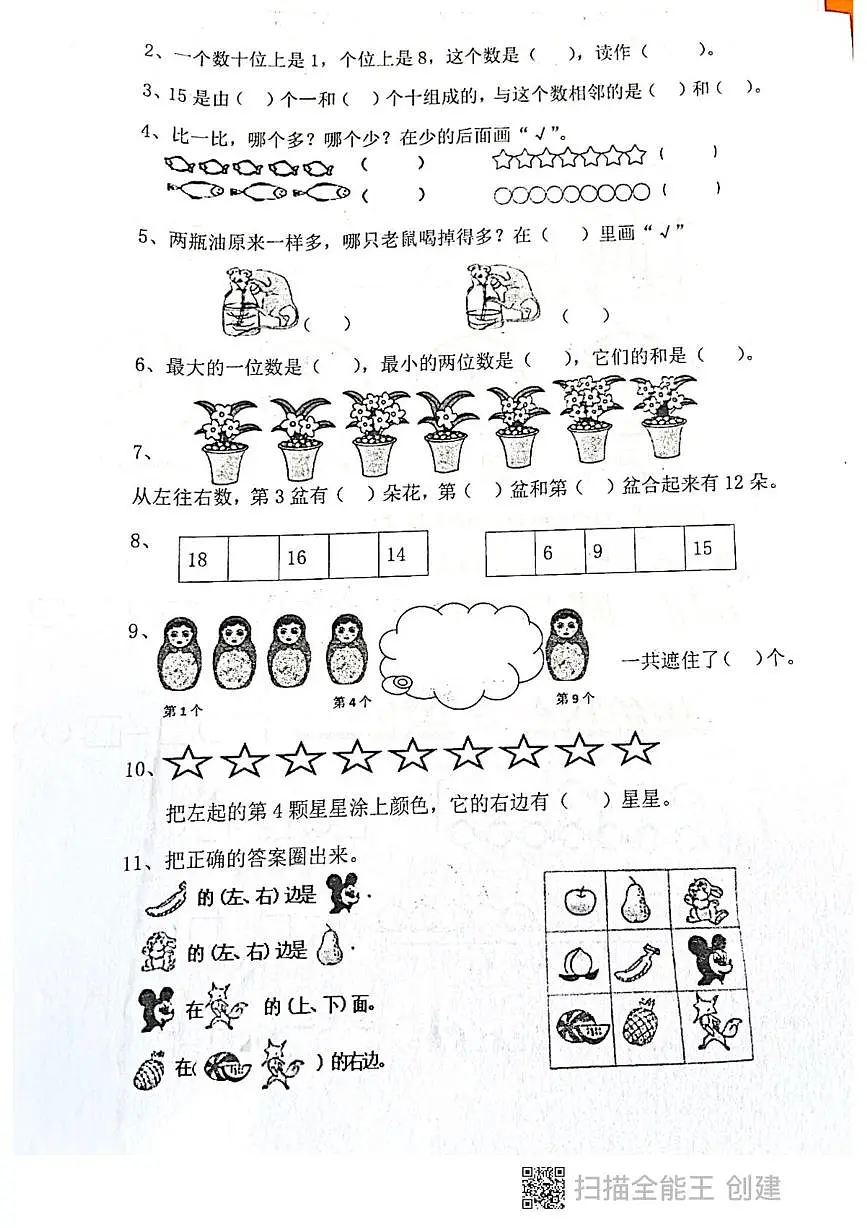 2、一个数十位上是1，个位上是8，这个数是（ ），读作（ ）。
3、15是由（ ）个一和（ ）个十组成的，与这个数相邻的是（ ）和（ ）。
4、比一比，哪个多？哪个少？在少的后面画“√”。
（ ） （ ）
（ ） （ ）
5、两瓶油原来一样多，哪只老鼠喝掉得多？在（ ）里画“√”
（ ） （ ）
6、最大的一位数是（ ），最小的两位数是（ ），它们的和是（ ）。
7、
从左往右数，第3盆有（ ）朵花，第（ ）盆和第（ ）盆合起来有12朵。
8、 18 16 14 6 9 15
9、 一共遮住了（ ）个。
第1个 第4个 第9个
10、
把左起的第4颗星星涂上颜色，它的右边有（ ）星星。
11、把正确的答案圈出来。
的(左、右)边是 .
的(左、右)边是 .
在 的(上、下)面。
在( )的右边。
扫描全能王 创建